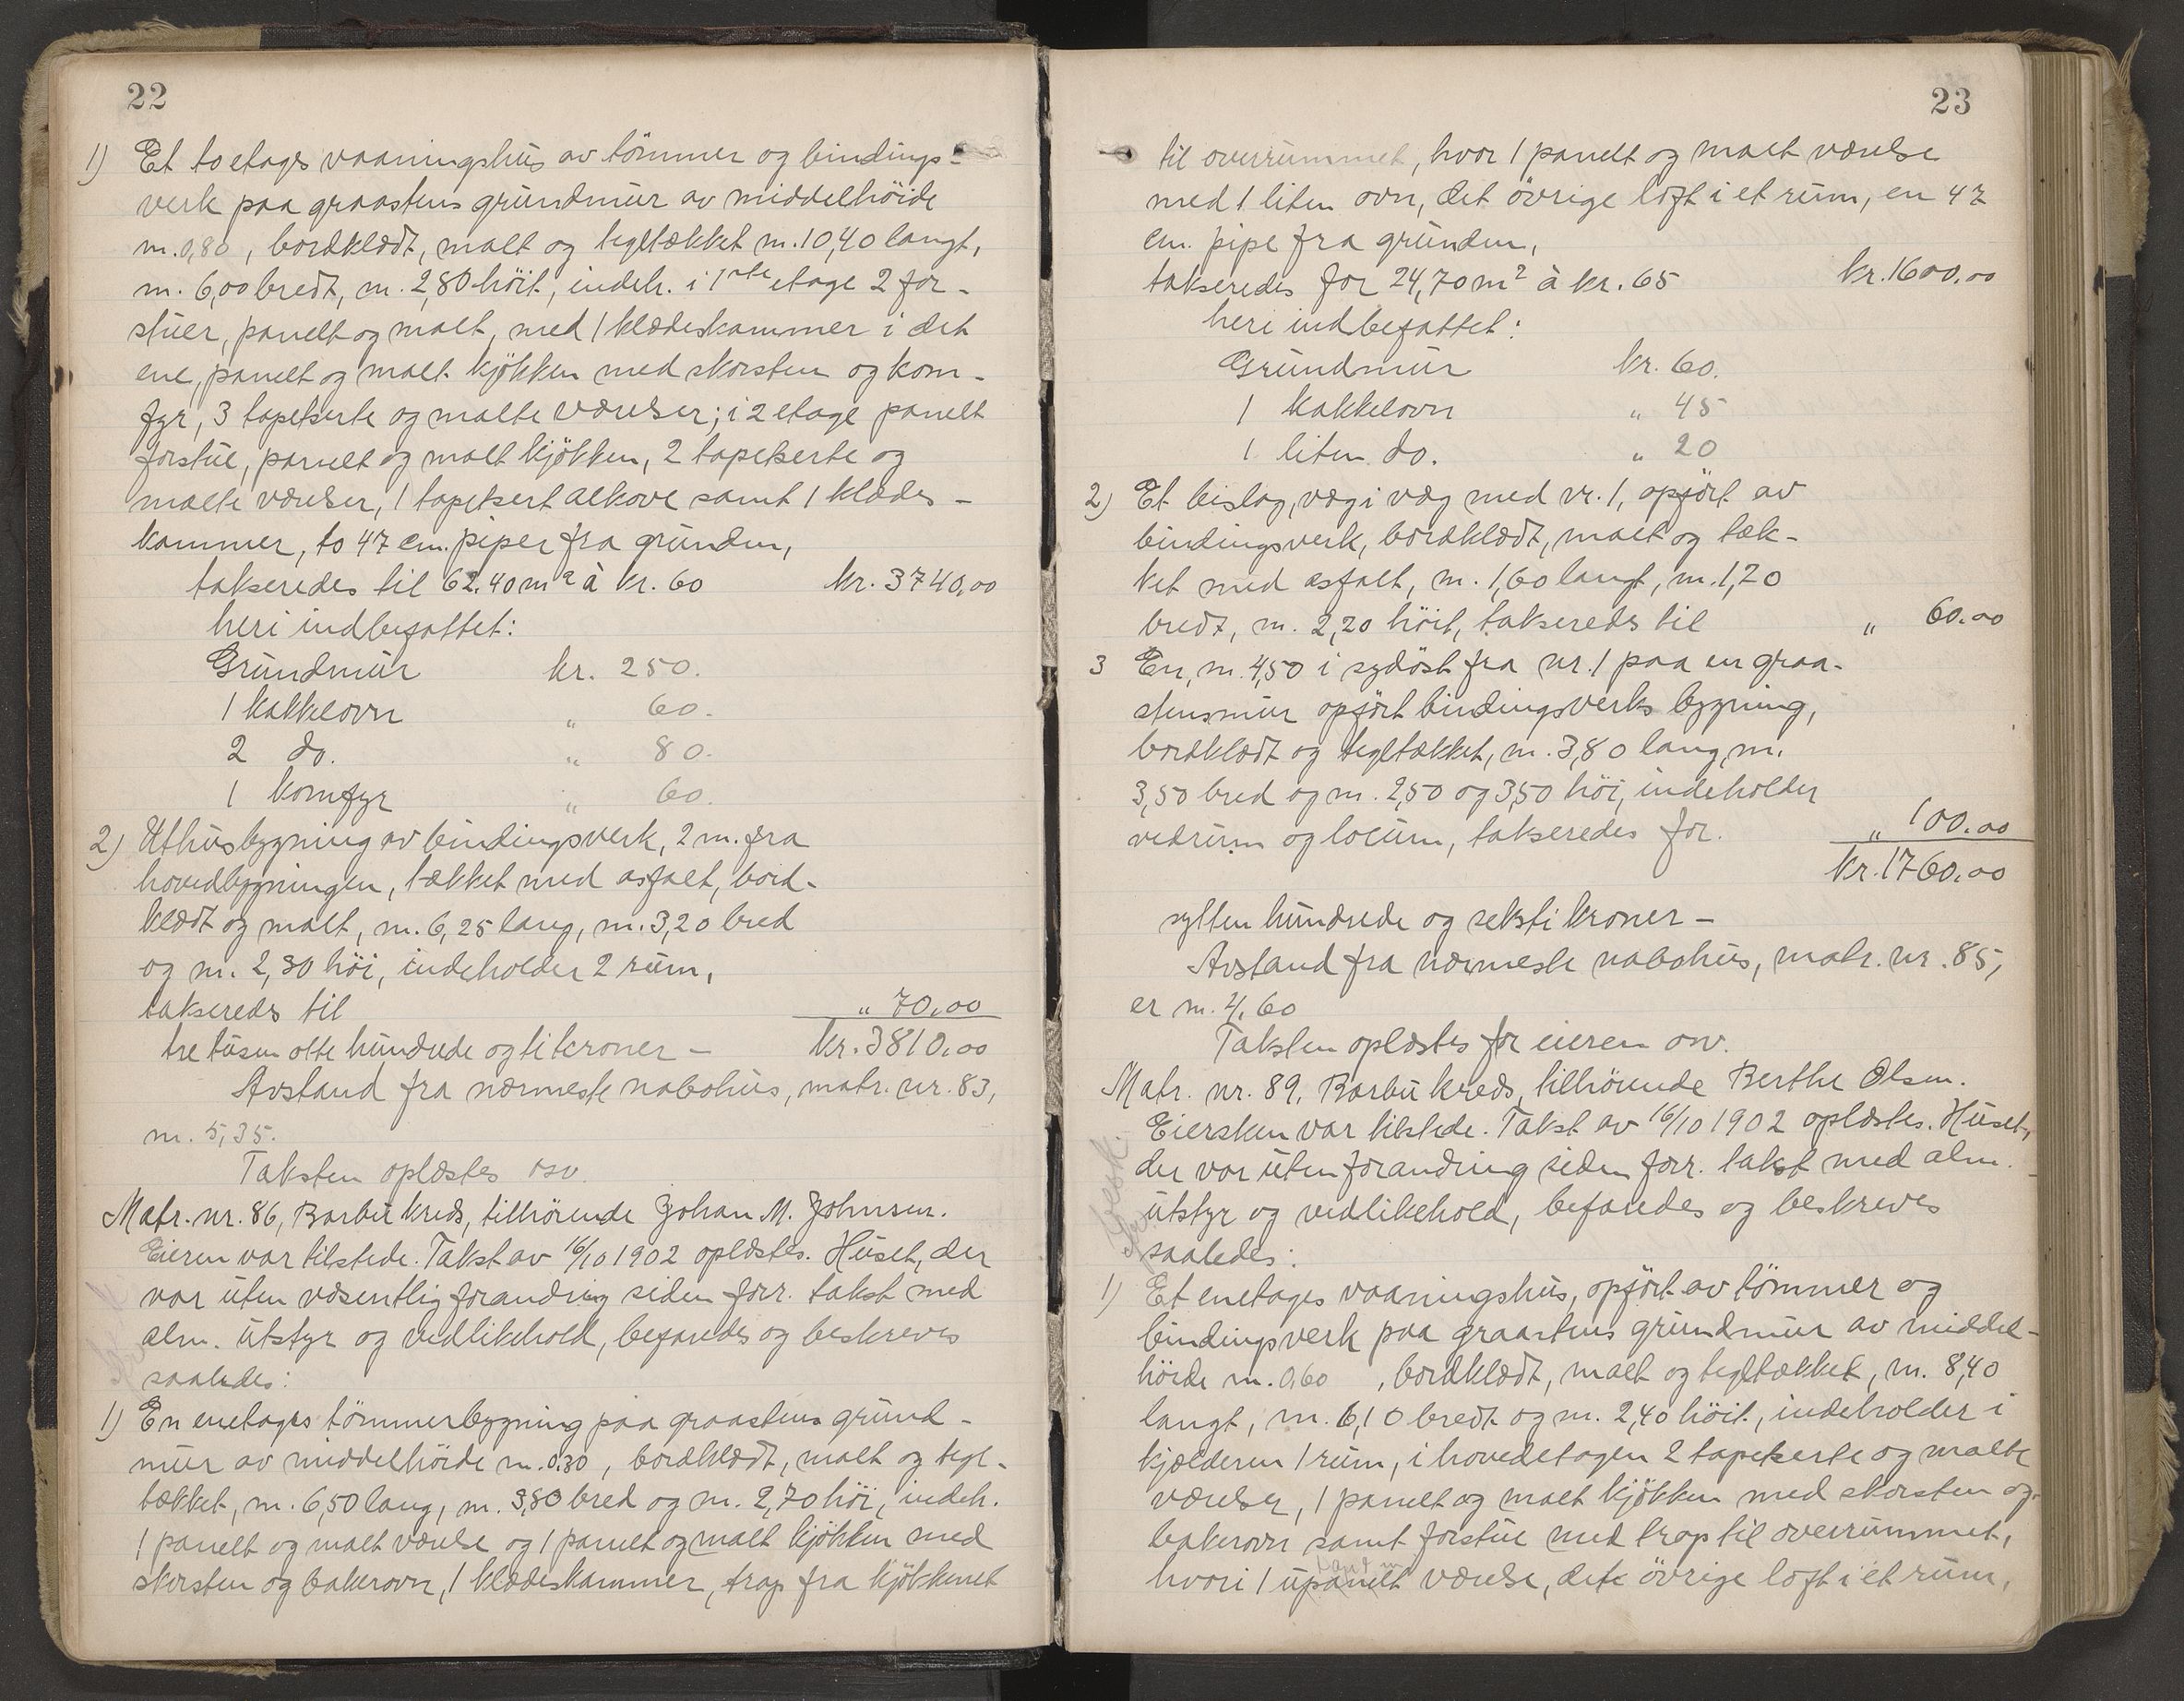 22
1) Et to etages vaaningshus av tömmer og bindings-
verk paa graastens grundmur av middelhöide
m. 0,80, bordklædt, malt og tegltækket m. 10,40 langt,
m. 6,00 bredt, m. 2,80 höit, indeh. i 1ste etage 2 for-
stuer, panelt og malt, med 1 klædeskammer i det
ene, panelt og malt kjökken med skorsten og kom-
fyr, 3 tapetserte og malte værelser; i 2 etage panelt
forstue, panelt og malt kjökken, 2 tapetserte og
malte værelser, 1 tapetsert alkove samt 1 klædes-
kammer, to 47 cm. piper fra grunden,
takseredes til 62.40 m² à kr. 60 kr. 3740,00
heri indbefattet:
Grundmur kr. 250.
1 kakkelovn " 60.
2 do. " 80.
1 komfyr " 60.
2) Uthusbygning av bindingsverk, 2 m. fra
hovedbygningen, tækket med asfalt, bord-
klædt og malt, m. 6,25 lang, m. 3,20 bred
og m. 2,30 höi, indeholder 2 rum,
takseredes til " 70,00
tre tusen otte hundrede og ti kroner - kr. 3810,00
Avstand fra nærmeste nabohus, matr. nr. 83,
m. 5,35.
Taksten oplæstes osv.
Matr. nr. 86, Barbu kreds, tilhörende Johan M. Johnsen.
Eieren var tilstede. Takst av 16/10 1902 oplæstes. Huset, der
var uten væsentlig forandring siden forr. takst med
alm. utstyr og vedlikehold, befaredes og beskreves
saaledes:
1) En enetages tömmerbygning paa graastens grund-
mur av middelhöide m. 0.30, bordklædt, malt og tegl-
tækket, m. 6,50 lang, m. 3,80 bred og m. 2,70 höi, indeh.
1 panelt og malt værelse og 1 panelt og malt kjökken med
skorsten og bakerovn, 1 klædeskammer, trap fra kjökkenet
23
til overrummet, hvor 1 panelt og malt værelse
med 1 liten ovn, det övrige loft i et rum, en 47
cm. pipe fra grunden,
takseredes for 24,70 m² à kr. 65 kr. 1600,00
heri indbefattet:
Grundmur kr. 60.
1 kakkelovn " 45
1 liten do. " 20
2) Et bislag, væg i væg med nr. 1, opfört av
bindingsverk, bordklædt, malt og tæk-
ket med asfalt, m. 1,60 langt, m. 1,20
bredt, m. 2,20 höit, takseredes til " 60.00
3 En, m. 4,50 i sydöst fra nr. 1 paa en graa-
stensmur opfört bindingsverks bygning,
bordklædt og tegltækket, m. 3,80 lang, m.
3,50 bred og m. 2,50 og 3,50 höi, indeholder
vedrum og locum, takseredes for. " 100.00
kr. 1760,00
sytten hundrede og seksti kroner -
Avstand fra nærmeste nabohus, matr. nr. 85,
er m. 4,60
Taksten oplæstes for eieren osv.
Matr. nr. 89, Barbu kreds, tilhörende Berthe Olsen.
Eiersken var tilstede. Takst av 16/10 1902 oplæstes. Huset,
der var uten forandring siden forr. takst med alm.
utstyr og vedlikehold, befaredes og beskreves
saaledes:
1) Et enetages vaaningshus, opfört av tömmer og
bindingsverk paa graastens grundmur av middel-
höide m. 0,60, bordklædt, malt og tegltækket, m. 8,40
langt, m. 6,10 bredt og m. 2,40 höit, indeholder i
kjælderen 1 rum, i hovedetagen 2 tapetserte og malte
værelser, 1 panelt og malt kjökken med skorsten og
bakerovn samt forstue med trap til overrummet,
hvori 1 upanelt værelse, det övrige loft i et rum,